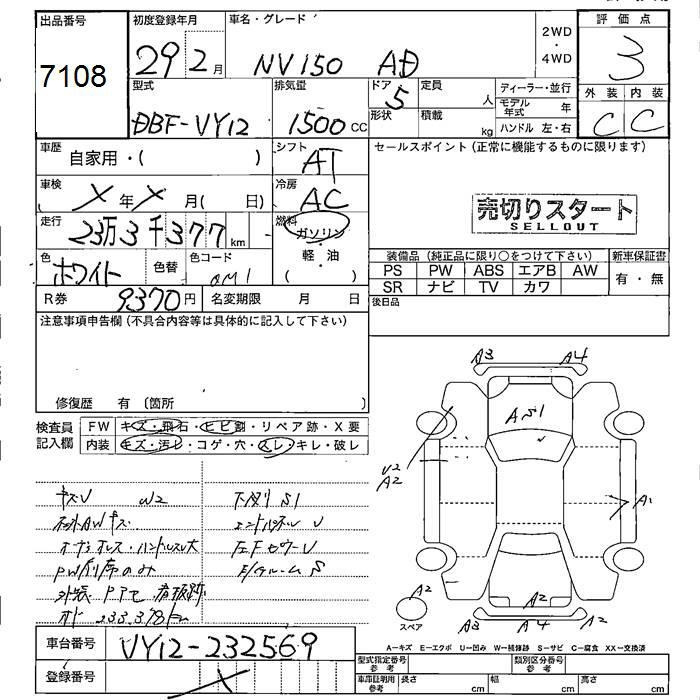 出品番号 初度登録年月 車名・グレード 2WD・4WD 評価点
7108 29 2月 NV150 AD 3
型式 排気量 ドア 定員 ディーラー・並行 外装 内装
DBF-VY12 1500cc 5 人 モデル年式 年 C C
形状 積載 kg ハンドル 左・右
車歴 自家用・( ) シフト AT セールスポイント(正常に機能するものに限ります)
車検 X年X月( 日) 冷房 AC
売切りスタート
SELLOUT
走行 23万3千377km 燃料 ガソリン
軽・油
色 ホワイト 色替 色コード QM1
装備品(純正品に限り○をつけて下さい) 新車保証書
PS PW ABS エアB AW 有・無
SR ナビ TV カワ
R券 9370円 名変期限 月 日 後日品
注意事項申告欄(不具合内容等は具体的に記入して下さい)
修復歴 有 〔箇所 〕
検査員記入欄 FW キズ・飛石・ヒビ割・リペア跡・X要
内装 キズ・汚レ・コゲ・穴・スレ・キレ・破レ
キズU W2 下廻りS1
エンドパネルU
PW前席のみ
外装 PPて 看板跡
A3 A4
AS1
U2
A2
A1
A2
スペア
A2
A3 A4 A2
車台番号 VY12-232569
登録番号 X
A-キズ E-エクボ U-凹み W-補修跡 S-サビ C-腐食 XX-交換済
型式指定番号 参考 類別区分番号 参考
車庫証明用 参考 長さ cm 幅 cm 高さ cm